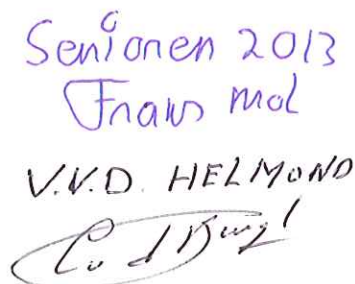 Senioren 2013
Frans Mol
V.V.D. HELMOND